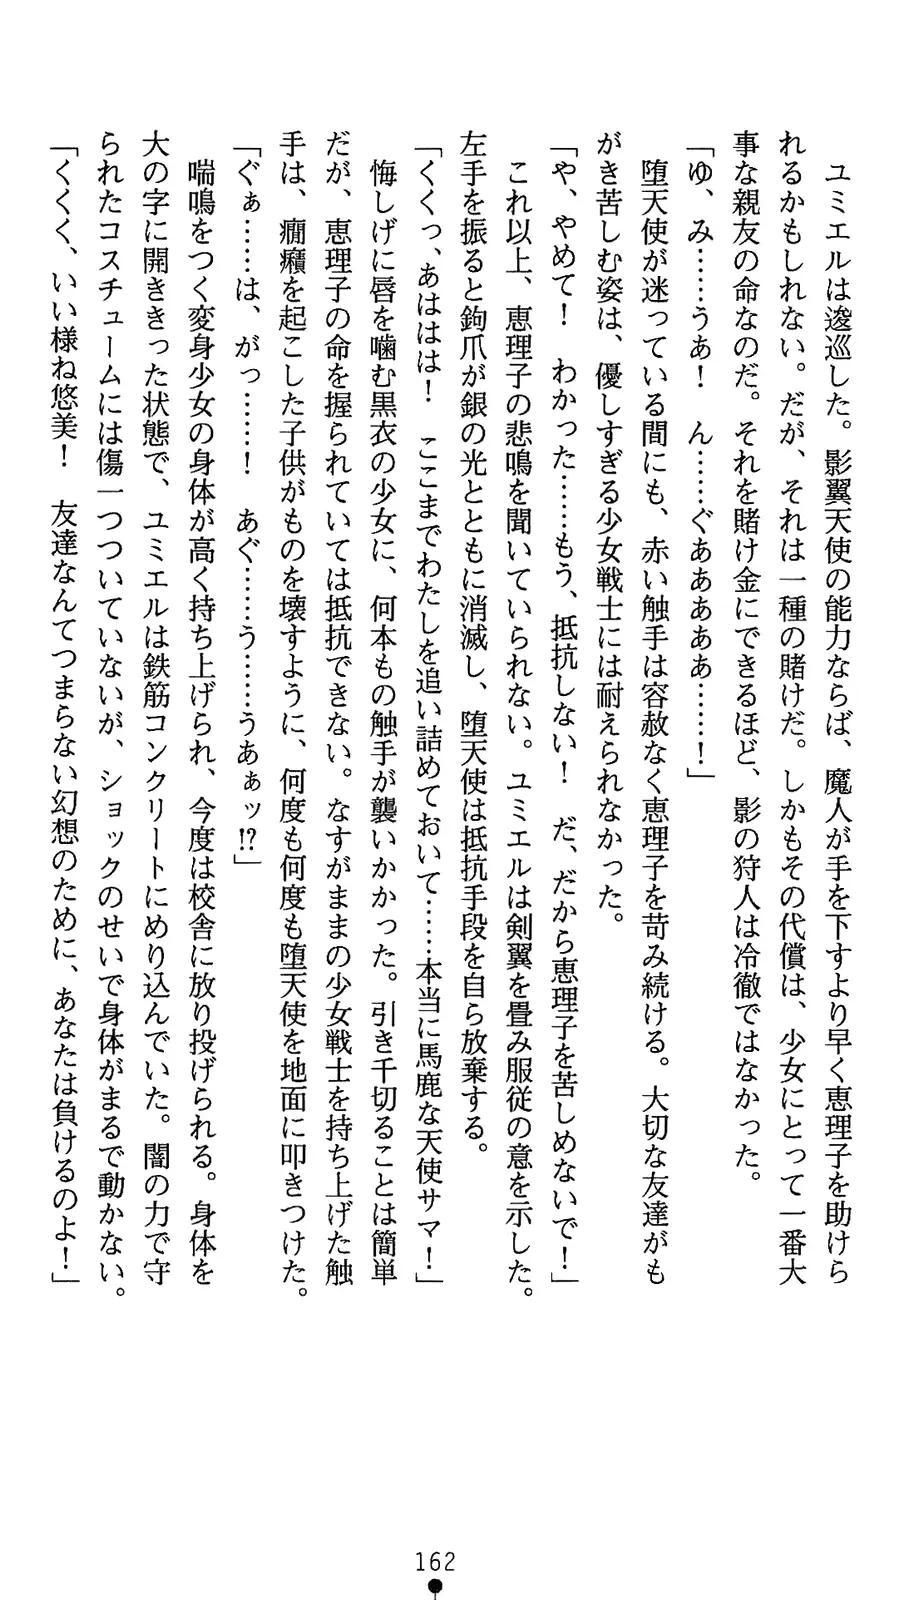 ユミエルは逡巡した。影翼天使の能力ならば、魔人が手を下すより早く恵理子を助けら
れるかもしれない。だが、それは一種の賭けだ。しかもその代償は、少女にとって一番大
事な親友の命なのだ。それを賭け金にできるほど、影の狩人は冷徹ではなかった。
「ゆ、み……うあ！　ん……ぐああああぁ……！」
　堕天使が迷っている間にも、赤い触手は容赦なく恵理子を苛み続ける。大切な友達がも
がき苦しむ姿は、優しすぎる少女戦士には耐えられなかった。
「や、やめて！　わかった……もう、抵抗しない！　だ、だから恵理子を苦しめないで！」
　これ以上、恵理子の悲鳴を聞いていられない。ユミエルは剣翼を畳み服従の意を示した。
左手を振ると鉤爪が銀の光とともに消滅し、堕天使は抵抗手段を自ら放棄する。
「くくっ、あははは！　ここまでわたしを追い詰めておいて……本当に馬鹿な天使サマ！」
　悔しげに唇を噛む黒衣の少女に、何本もの触手が襲いかかった。引き千切ることは簡単
だが、恵理子の命を握られていては抵抗できない。なすがままの少女戦士を持ち上げた触
手は、癇癪を起こした子供がものを壊すように、何度も何度も堕天使を地面に叩きつけた。
「ぐぁ……は、がっ……！　あぐ……う……うあぁッ!?」
　喘鳴をつく変身少女の身体が高く持ち上げられ、今度は校舎に放り投げられる。身体を
大の字に開ききった状態で、ユミエルは鉄筋コンクリートにめり込んでいた。闇の力で守
られたコスチュームには傷一つついていないが、ショックのせいで身体がまるで動かない。
「くくく、いい様ね悠美！　友達なんてつまらない幻想のために、あなたは負けるのよ！」
162